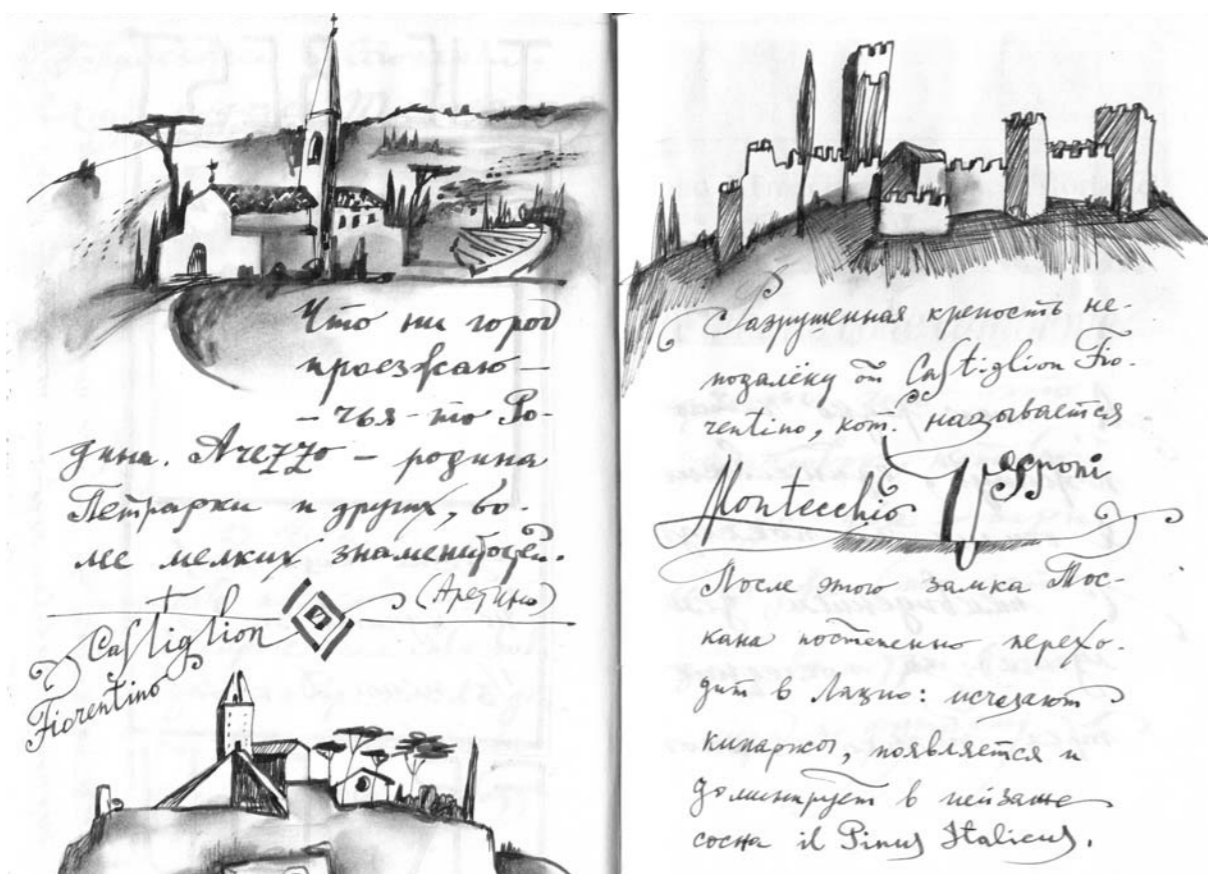 Что ни город
проезжаю —
— чья-то Ро-
дина. Arezzo — родина
Петрарки и других, бо-
лее мелких знаменитостей.
(Аретино)
Castiglion
Fiorentino
Разрушенная крепость не-
подалёку от Castiglion Fio-
rentino, кот. называется
Montecchio Vesponi
После этого замка Тос-
кана постепенно перехо-
дит в Лацио: исчезают
кипарисы, появляется и
доминирует в пейзаже
сосна il Pinus Italicus.